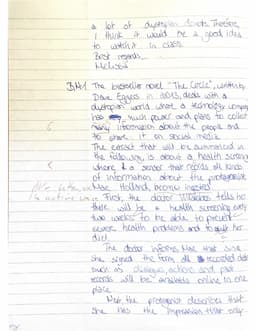 a lot of dystopian
I think it would be a good idea
to watch it in class.
Best regards,
Melissa
The bestseller novel "The Circle", written by
Dave Eggers in 2013, deals with a
dystopian world where a technology company
has such power and plans to collect
many information about the people and
to share it on social media.
The extract that will be summarized in
the following is about a health screening
where a sensor that records all kinds
of information about the protagonist
Mae Holland, became ingested.
First, the doctor tells her
there will be a health screening every
two weeks to be able to prevent
severe health problems and to
her diet.
The doctor informs Mae that since
she signed the form, all recorded data
such as actions and past
records will be online in one
place.
Next, the protagonist describes that
she has the impression that only